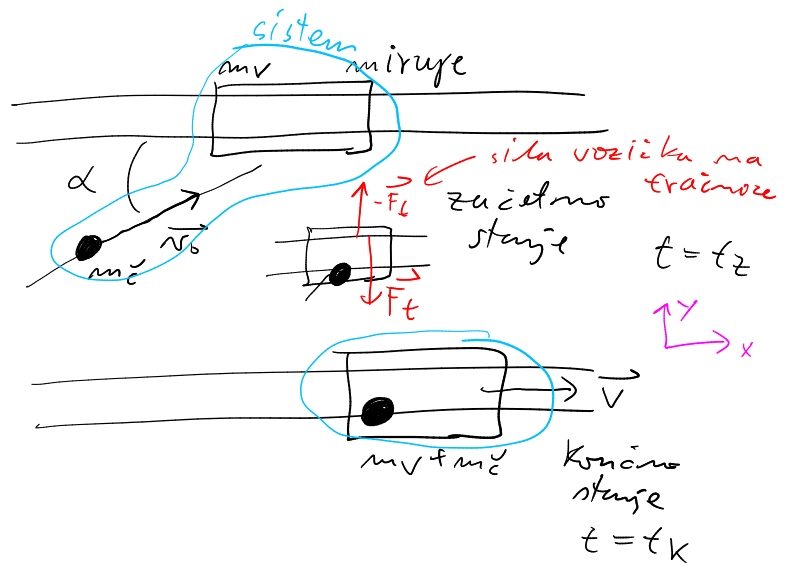 sistem
mv miruje
α
v₀
mč
sila vozička na
tračnice
-Ft
začetno
stanje
t = tz
Ft
y
x
v
mv + mč
končno
stanje
t = tk